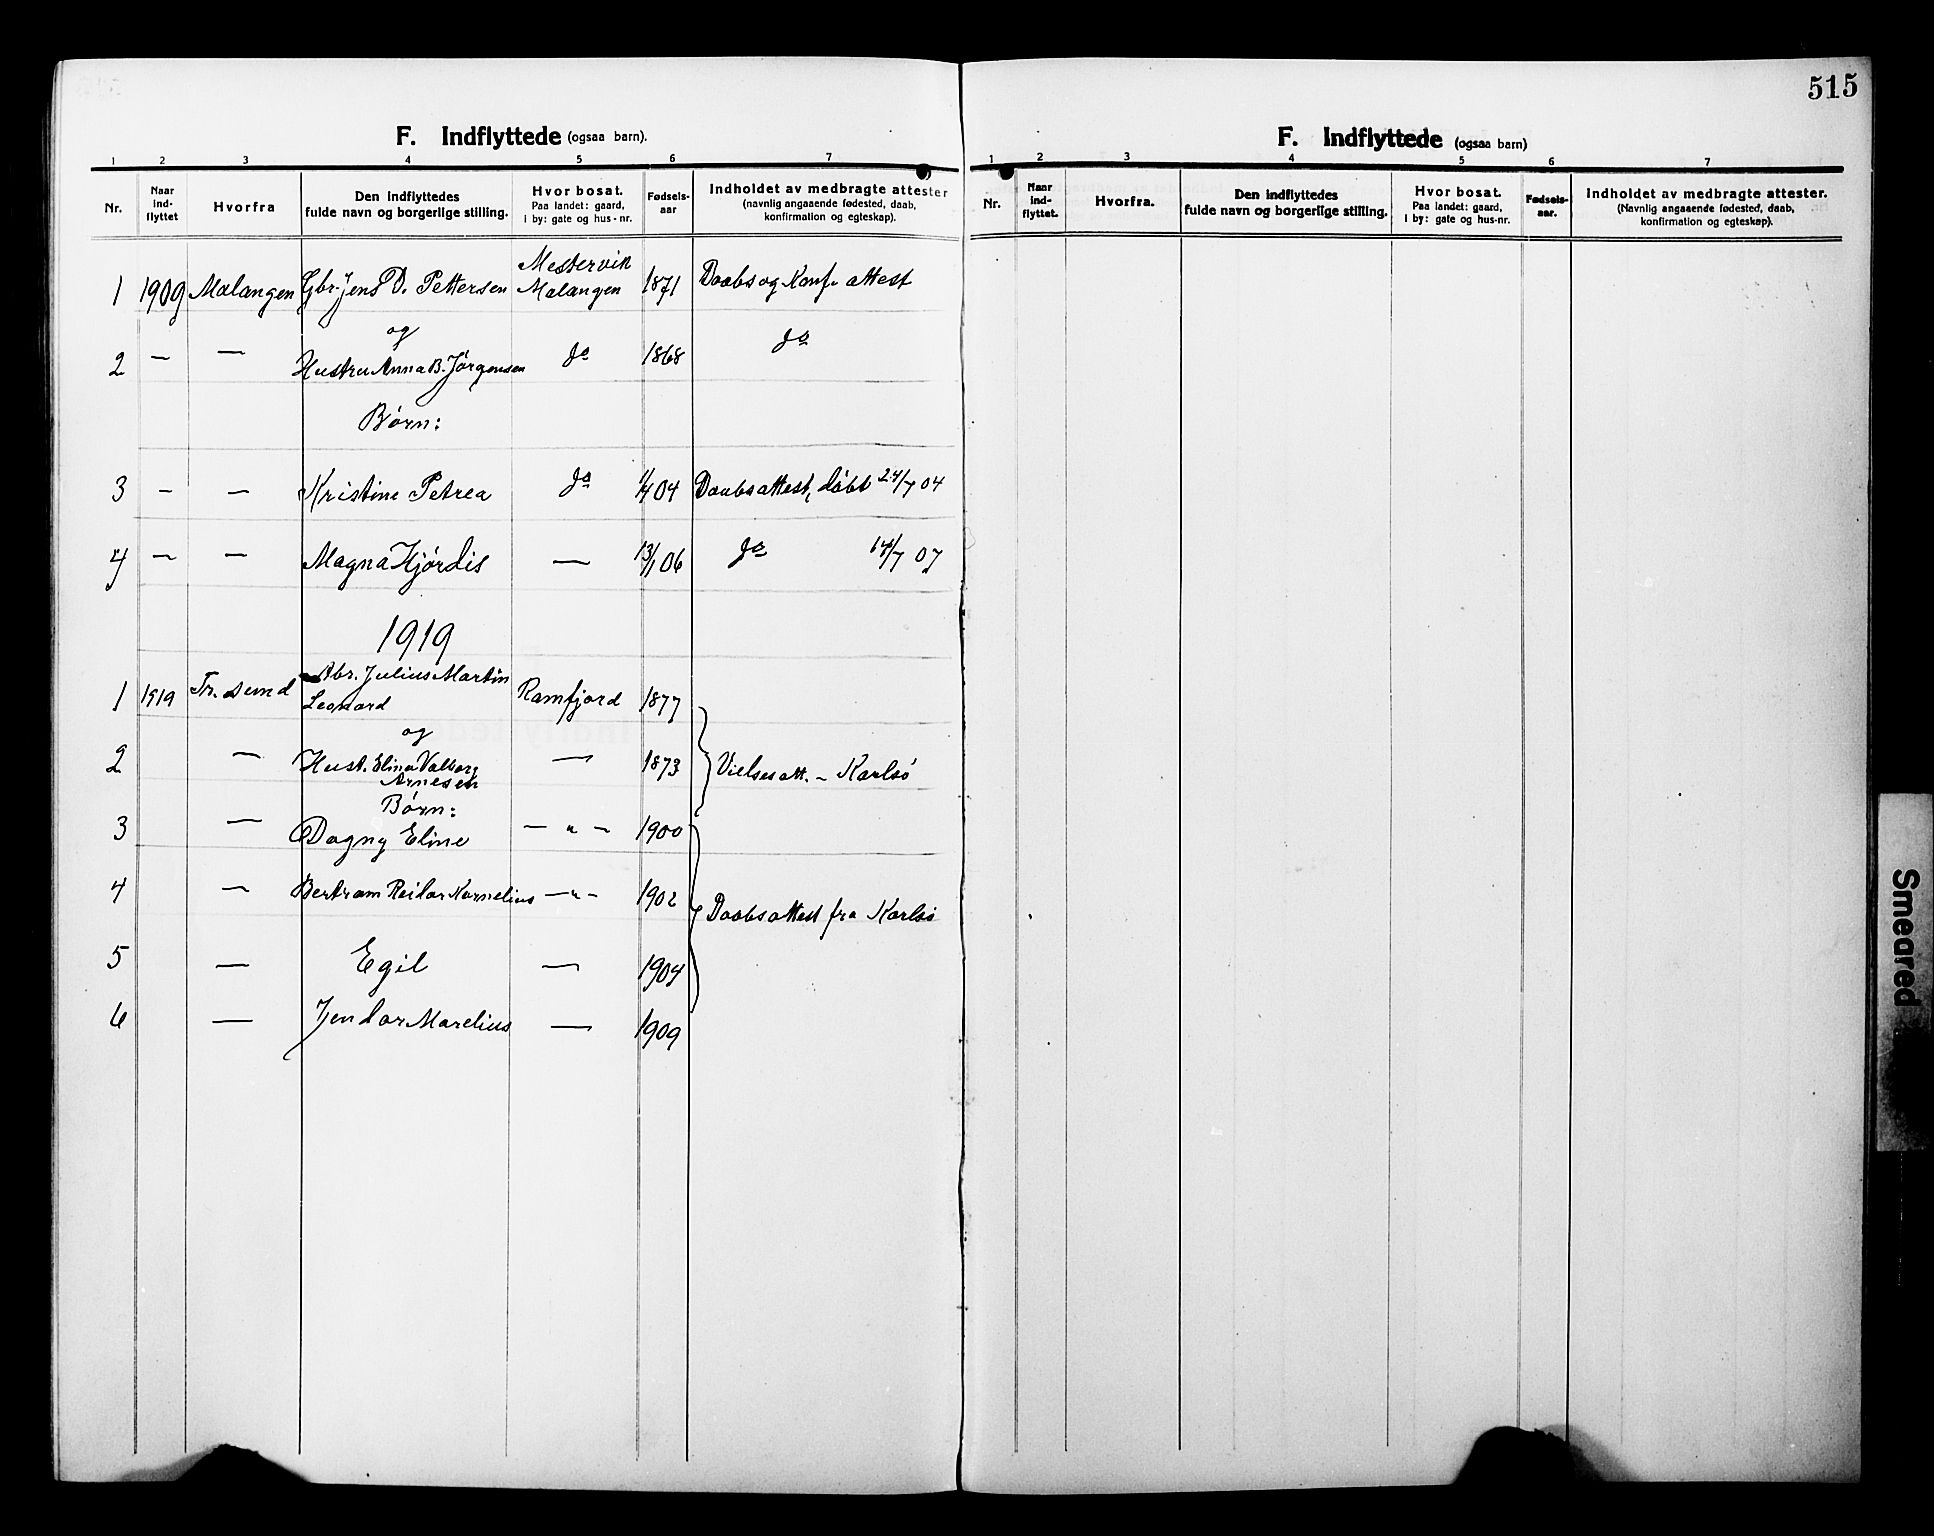 515
F. Indflyttede (ogsaa barn).
1 2 3 4 5 6 7
Nr. Naar ind-flyttet Hvorfra Den indflyttedes fulde navn og borgerlige stilling. Hvor bosat. Paa landet: gaard, I by: gate og hus-nr. Fødsels-aar Indholdet av medbragte attester (navnlig angaaende fødested, daab, konfirmation og egteskap).
1 1909 Malangen Gbr. Jens D. Pettersen Mestervik Malangen 1871 Daabs og Konf. attest
og
2 — — Hustru Anna B. Jørgensen do 1868 do
Børn:
3 — — Kristine Petrea do 1/4 04 Daabsattest, døbt 24/7 04
4 — — Magna Hjørdis — 13/1 06 do 14/7 07
1919
1 1919 Tr. sund Abr. Julius Martin
Leonard Ramfjord 1877
og
2 — Hust. Elina Valborg — 1873 Vielsesatt. - Karlsö
Arnesen
Børn:
3 — Dagny Eline — " — 1900
4 — Bertram Reidar Kornelius — " — 1902 Daabsattest fra Karlsö
5 — Egil — 1904
6 — Jendor Marelius — 1909
F. Indflyttede (ogsaa barn)
1 2 3 4 5 6 7
Nr. Naar ind-flyttet. Hvorfra. Den indflyttedes fulde navn og borgerlige stilling. Hvor bosat. Paa landet: gaard, I by: gate og hus-nr. Fødsels-aar. Indholdet av medbragte attester. (Navnlig angaaende fødested, daab, konfirmation og egteskap).
Smeared